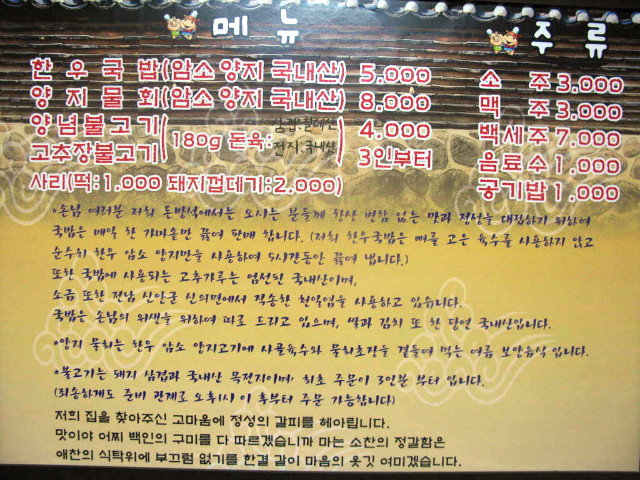 메뉴
한우국밥(암소양지 국내산) 5,000
양지물회(암소양지 국내산) 8,000
양념불고기
고추장불고기
(180g 돈육: 전지,국내산) 4,000
3인부터
사리(떡:1,000 돼지껍데기:2,000)
주류
소주 3,000
맥주 3,000
백세주 7,000
음료수 1,000
공기밥 1,000
*손님 여러분 저희 돈방석에서는 오시는 분들께 항상 변함 없는 맛과 정성을 대접하기 위하여
국밥은 매일 한 가마솥만 끓여 판매 합니다. (저희 한우국밥은 뼈를 고은 육수를 사용하지 않고
순수히 한우 암소 양지만을 사용하여 5시간동안 끓여 냅니다.)
또한 국밥에 사용되는 고추가루는 엄선된 국내산이며,
소금 또한 전남 신안군 신의면에서 직송한 천일염을 사용하고 있습니다.
국밥은 손님의 위생을 위하여 따로 드리고 있으며, 쌀과 김치 또 한 당연 국내산입니다.
*양지 물회는 한우 암소 양지고기에 사골육수와 물회초장을 곁들여 먹는 여름 보양음식 입니다.
*불고기는 돼지 삼겹과 국내산 목전지이며 최초 주문이 3인분 부터 입니다.
(죄송하게도 준비 관계로 오후1시 이 후부터 주문 가능합니다)
저희 집을 찾아주신 고마움에 정성의 갈피를 헤아립니다.
맛이야 어찌 백인의 구미를 다 따르겠습니까 마는 소찬의 정갈함은
애찬의 식탁위에 부끄럼 없기를 한결 같이 마음의 옷깃 여미겠습니다.